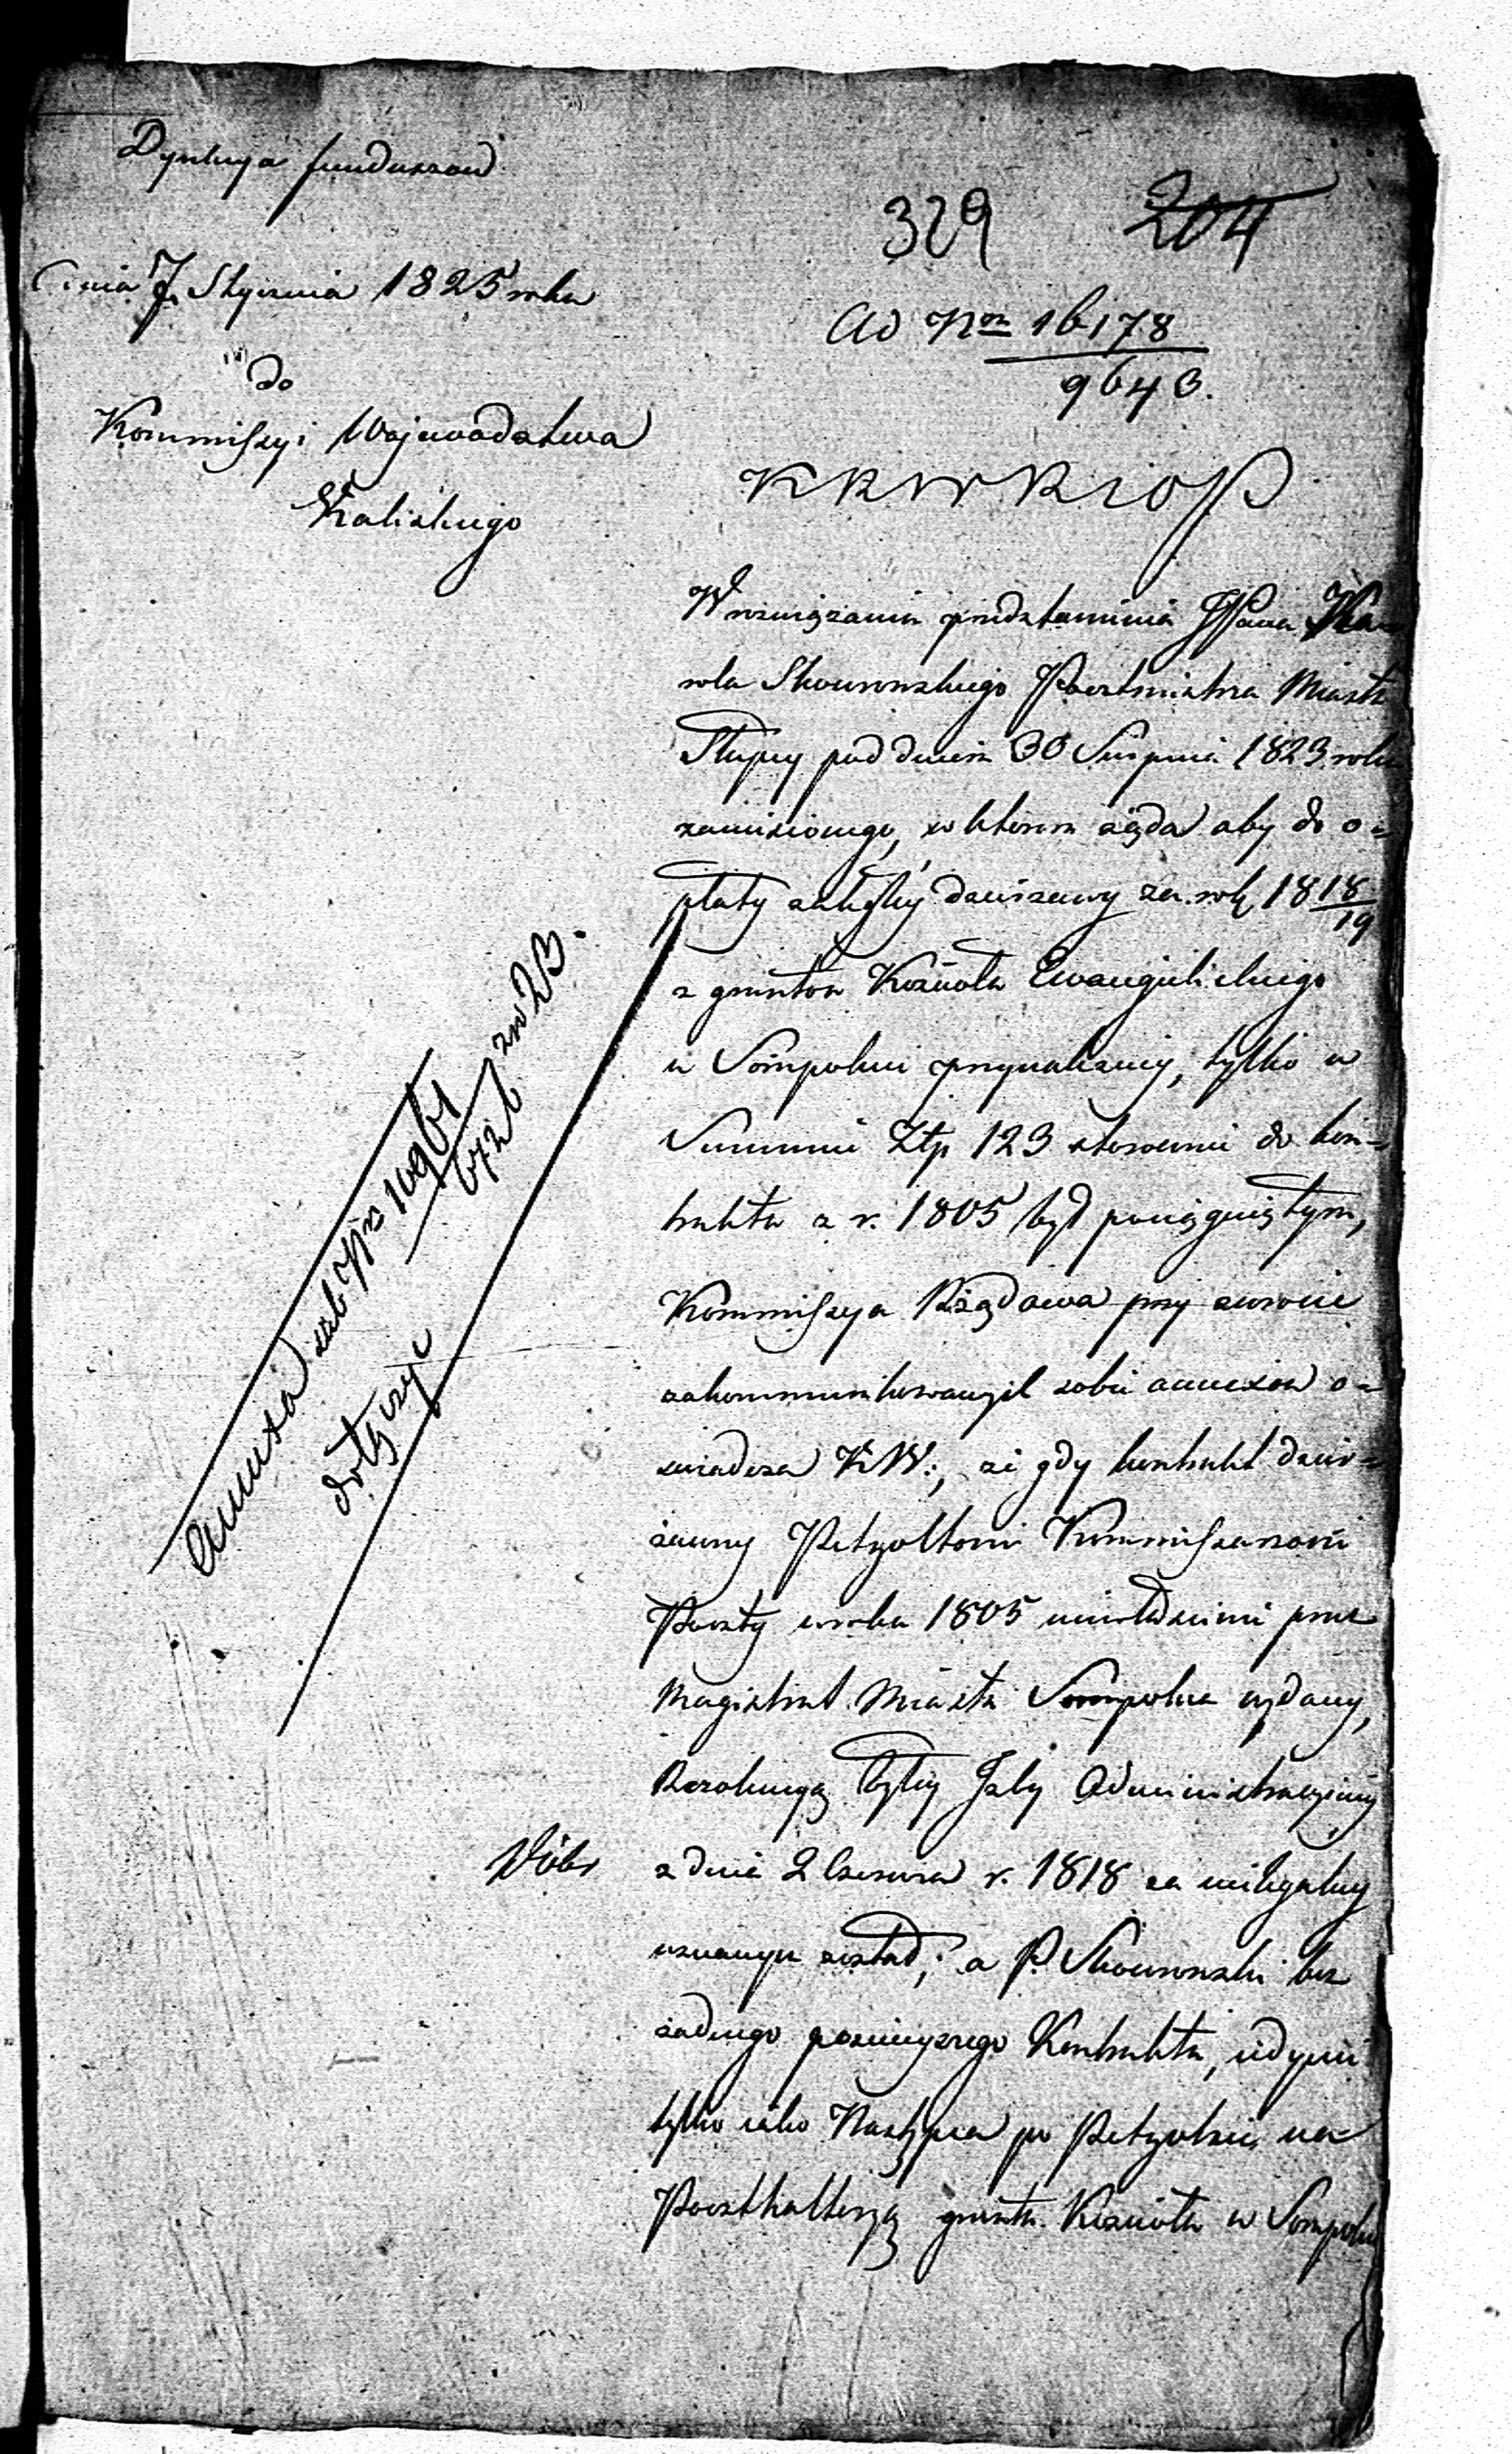 Dyrekcya funduszow
329 204
dnia 7. Stycznia 1825 roku
Ad Nrm 16178
9643.
do
Kommissyi Wojewodztwa
Kaliskiego
KRWRiOP
W rozwiązaniu przedstawienia JPana Ka-
rola Skowronskiego Pocztmistrza Miasta
Słupcy pod dniem 30 Sierpnia 1823 roku
zaniesionego, w ktorem żąda aby do o-
płaty zaległej dzierzawy za rok 1818/19
z gruntow Kościoła Ewangielickiego
w Sompolnie przynależney, tylko w
Summie Złp 123 stosownie do kon-
traktu z r. 1805 był pociągniętym,
Kommissya Rządowa przy zwrocie
zakommunikowanych sobie annexow o-
świadcza KW:, że gdy kontrakt dzier-
żawny Petzoltowi Kommissarzowi
Poczty w roku 1805 przez
Magistrat Miasta Sompolna wydany,
Rezolucyą byłey Izby Administracyiney
Dóbr
z dnia 2 Czerwca r. 1818 za nielegalny
uznanym został; a P. Skowronski bez
żadnego poźnieyszego Kontraktu, iedynie
tylko iako Następca po Petzolcie na
Poczthalteryą grunta Kościoła w Sompolnie
Annexa sub Nro 10961
6726 zr 23.
dołączyć